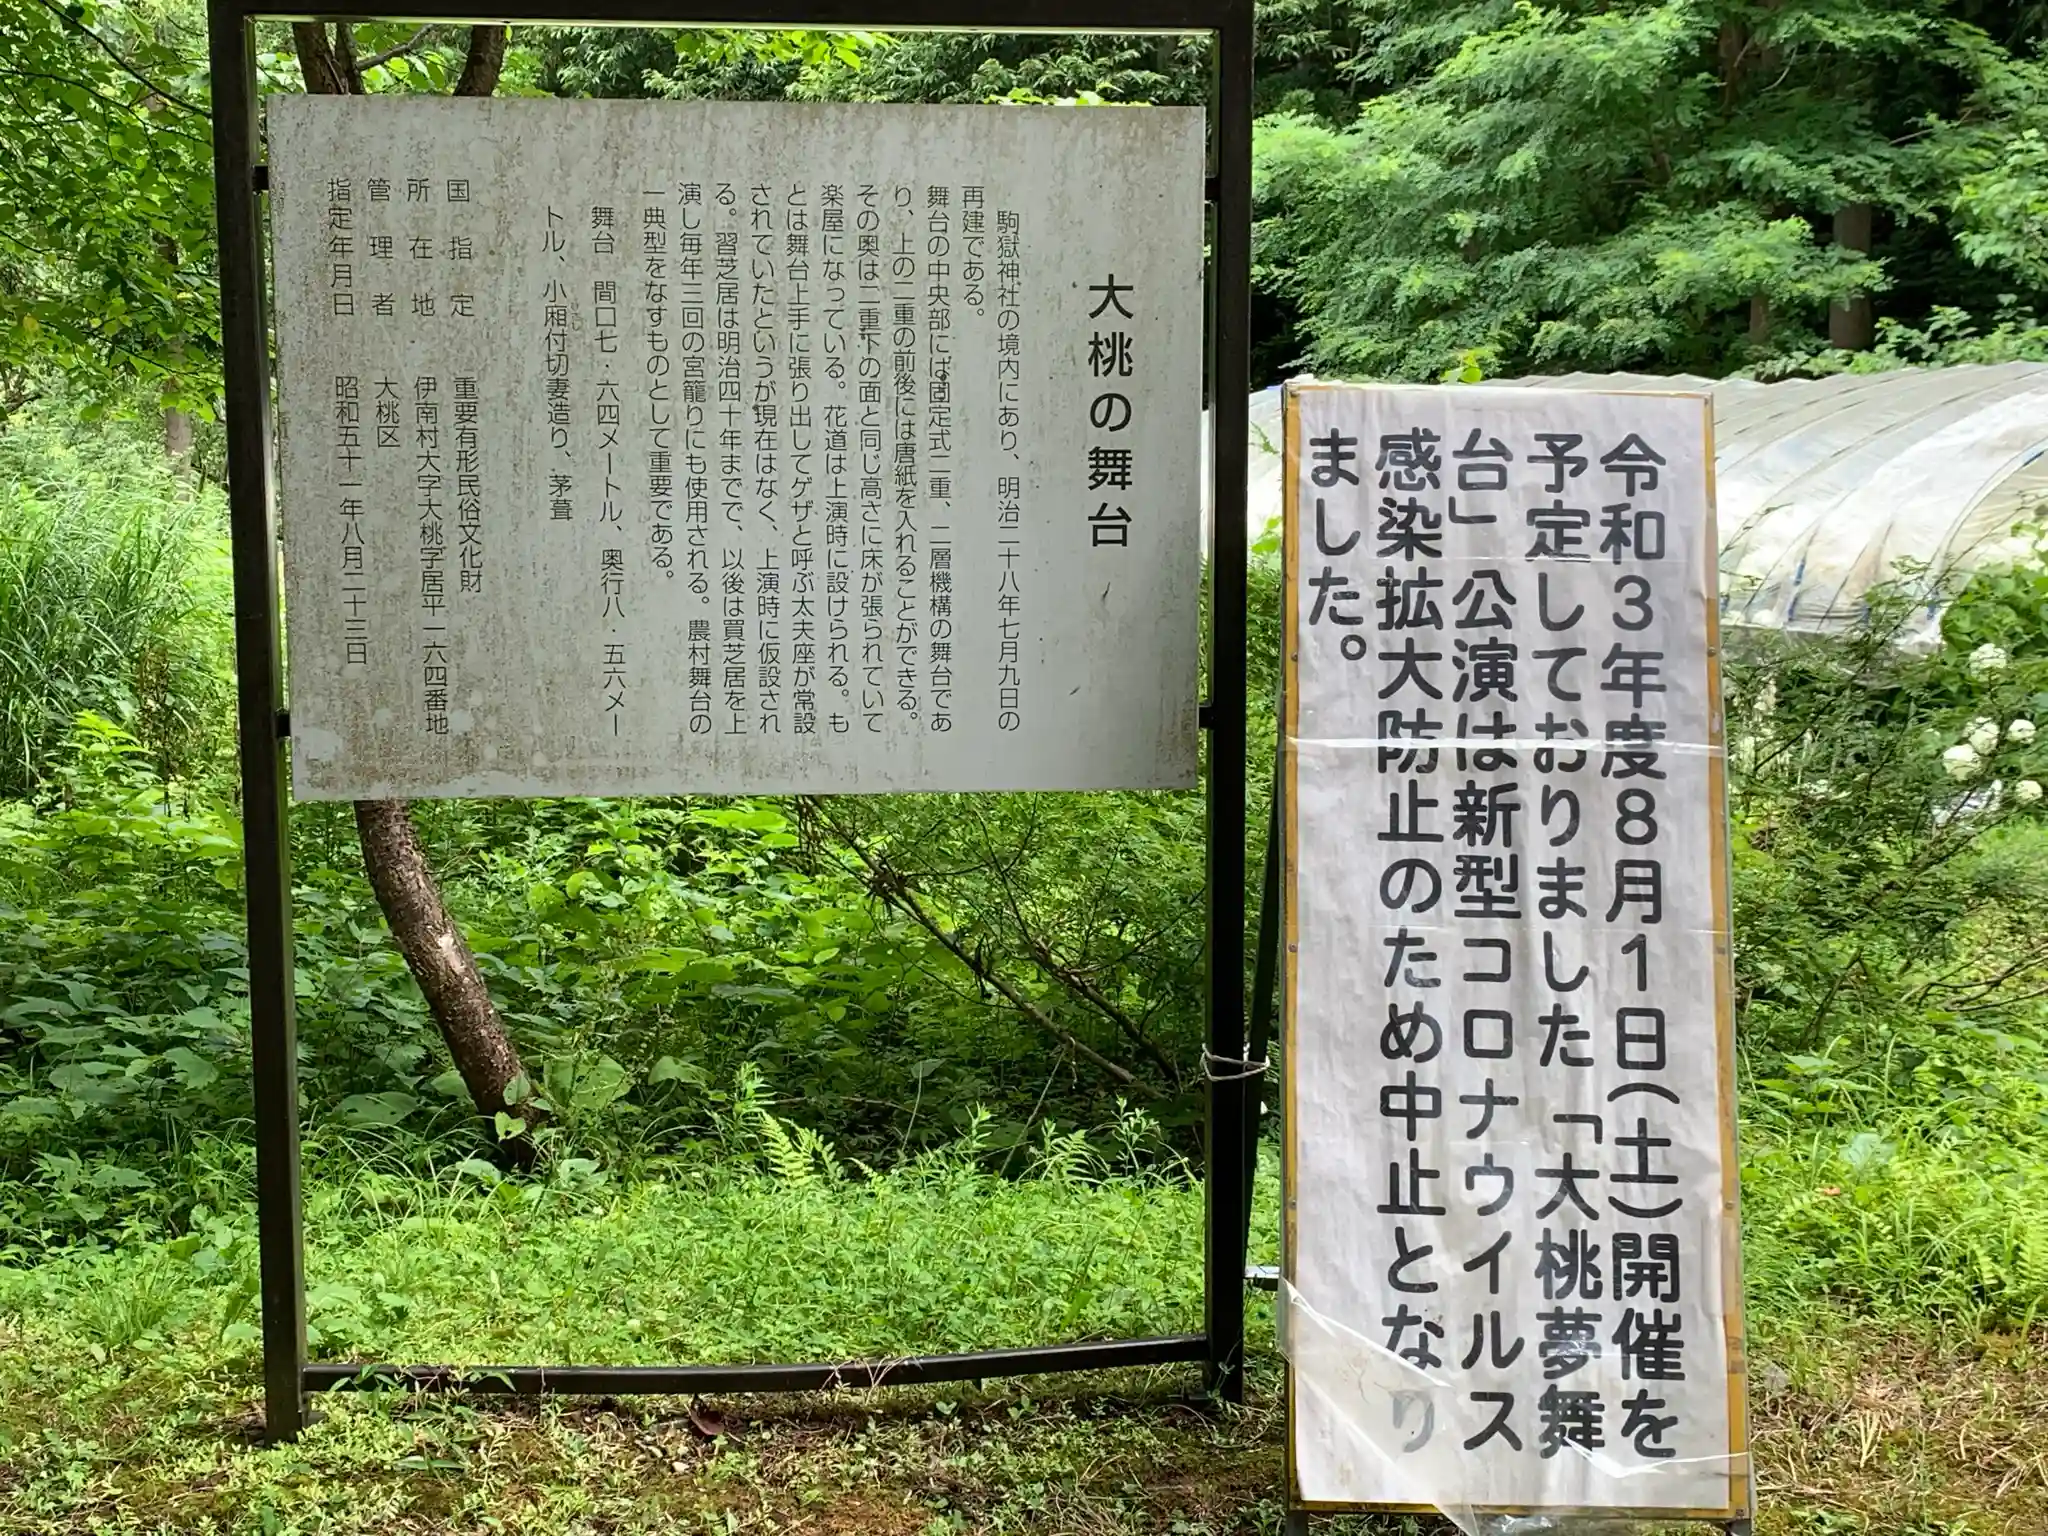 大桃の舞台
駒獄神社の境内にあり、明治二十八年七月九日の
再建である。
舞台の中央部には固定式二重、二層機構の舞台であ
り、上の二重の前後には唐紙を入れることができる。
その奥は二重下の面と同じ高さに床が張られていて
楽屋になっている。花道は上演時に設けられる。も
とは舞台上手に張り出してゲザと呼ぶ太夫座が常設
されていたというが現在はなく、上演時に仮設され
る。習芝居は明治四十年までで、以後は買芝居を上
演し毎年三回の宮籠りにも使用される。農村舞台の
一典型をなすものとして重要である。
舞台 間口七・六四メートル、奥行八・五六メー
トル、小廂付切妻造り、茅葺
国指定 重要有形民俗文化財
所在地 伊南村大字大桃字居平一六四番地
管理者 大桃区
指定年月日 昭和五十一年八月二十三日
令和3年度8月1日(土)開催を
予定しておりました「大桃夢舞
台」公演は新型コロナウイルス
感染拡大防止のため中止となり
ました。